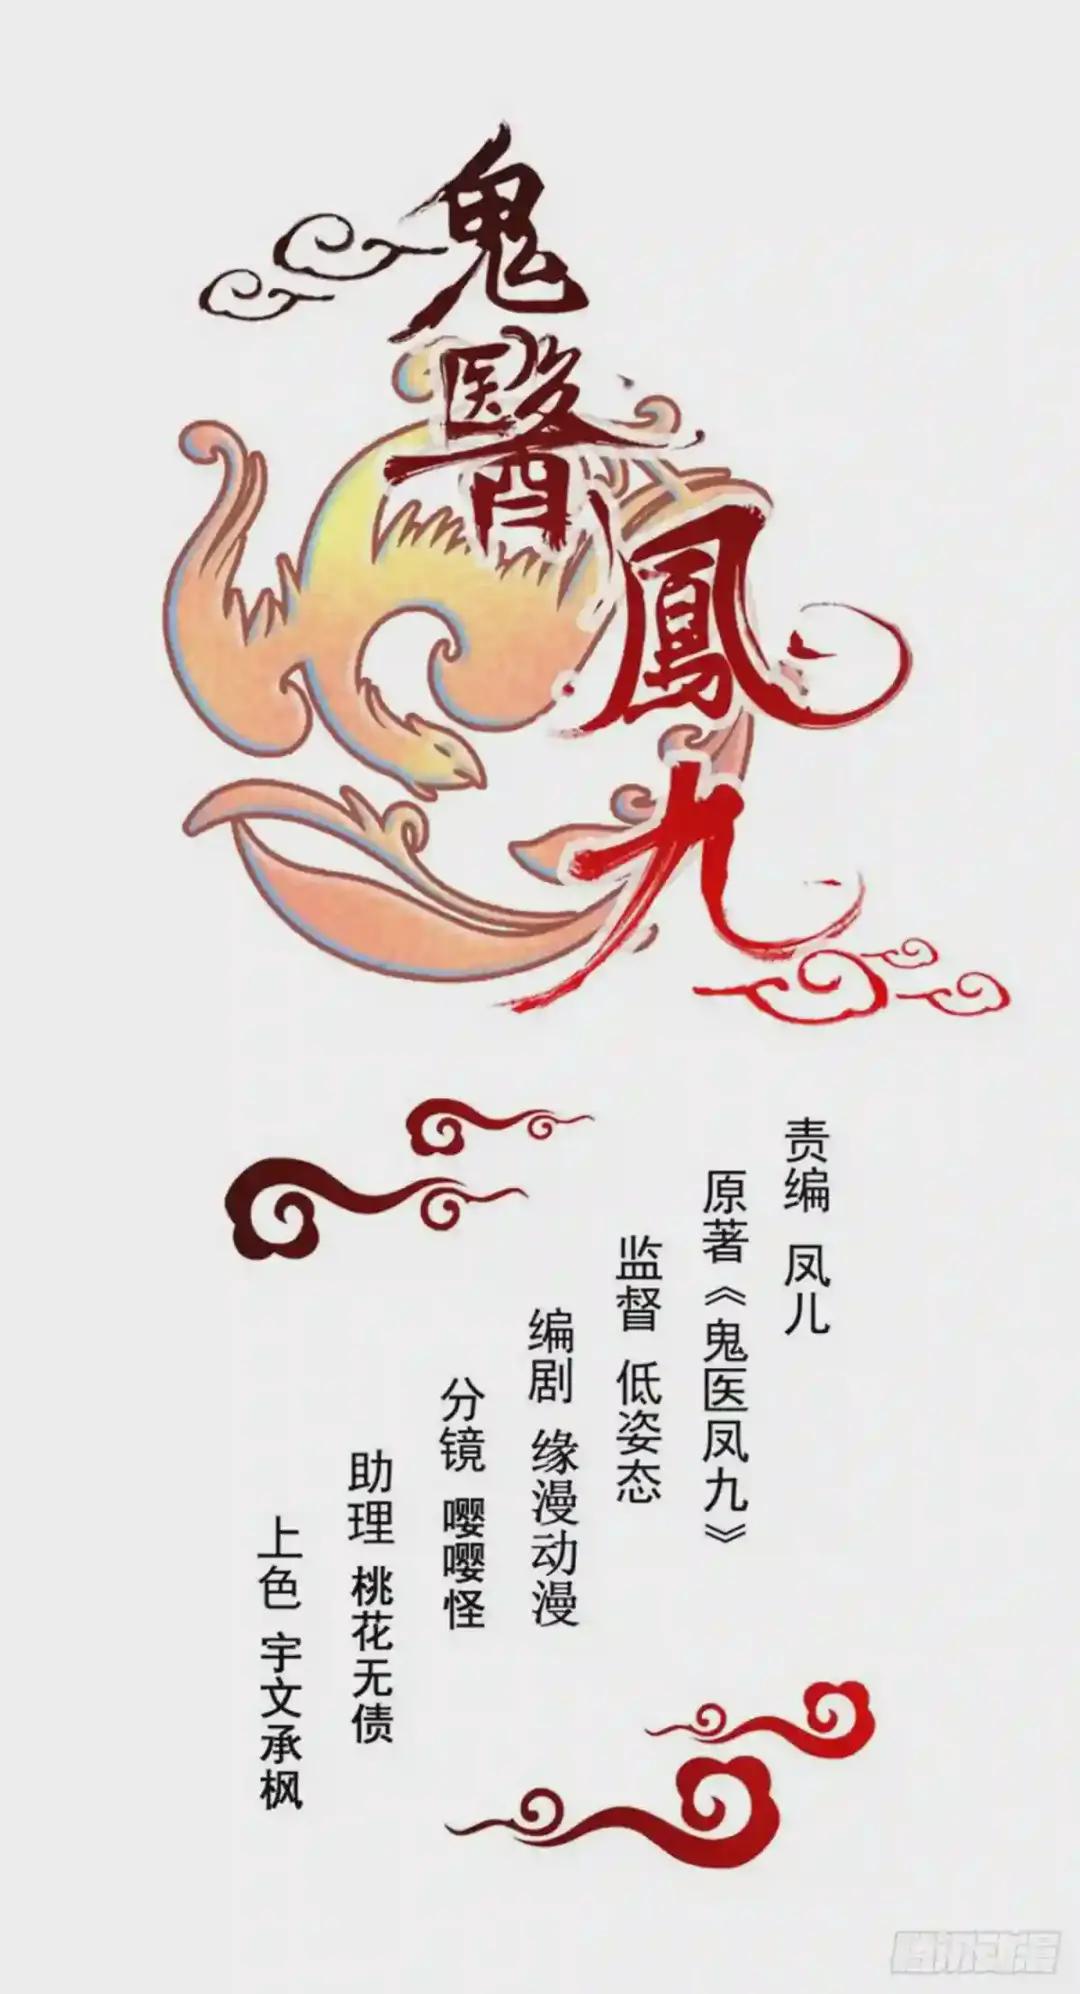 鬼醫鳳九
责编 凤儿
原著《鬼医凤九》
监督 低姿态
编剧 缘漫动漫
分镜 嘤嘤怪
助理 桃花无债
上色 宇文承枫
腾讯动漫